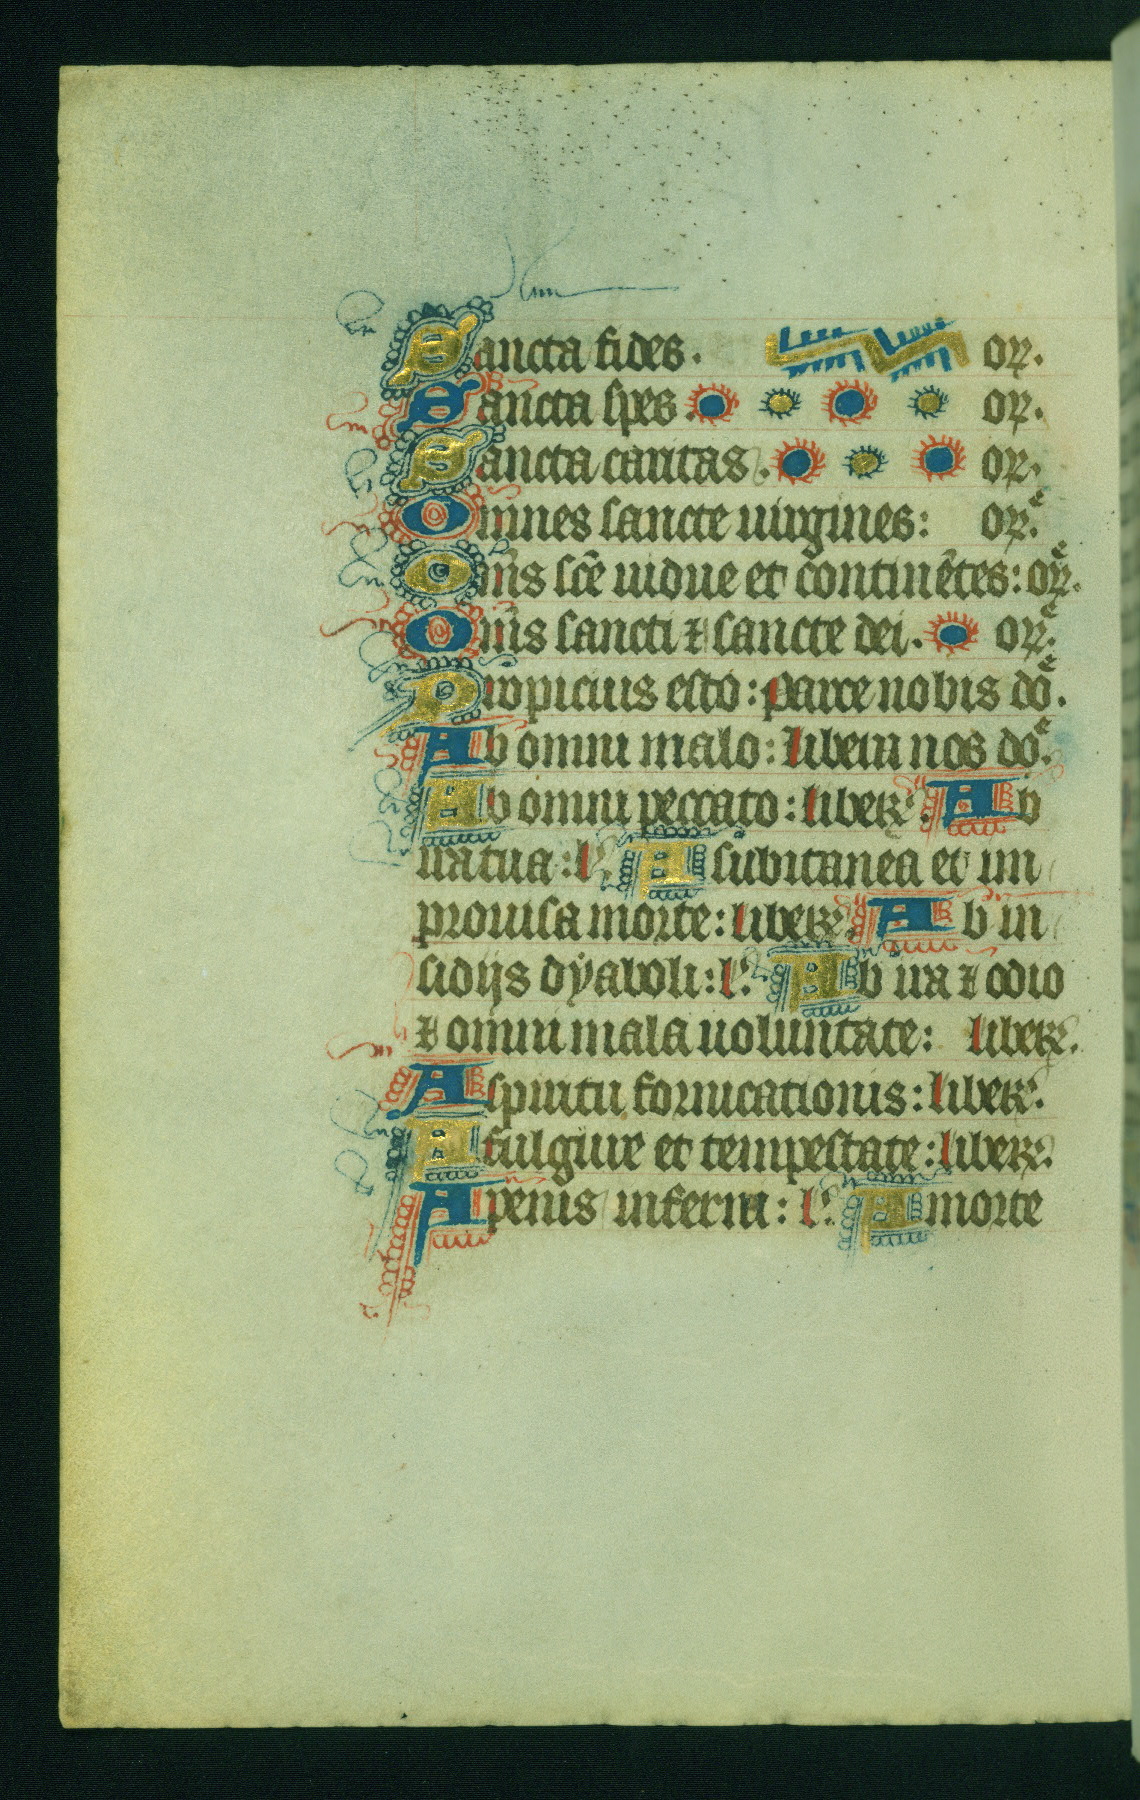 Sancta fides. oꝝ.
Sancta spes. oꝝ.
Sancta caritas. oꝝ.
Omnes sancte uirgines: oꝝᵉ.
Om̄s sc̄e uidue et continētes: oꝝᵉ.
Om̄s sancti ⁊ sancte dei. oꝝᵉ.
Propicius esto: parce nobis dōᵉ.
Ab omni malo: libera nos dōᵉ.
Ab omni peccato: liberꝯ. Ab
ira tua: lꝰ. A subitanea et im
prouisa morte: liberꝯ. Ab in
sidijs dyaboli: lꝰ. Ab ira ⁊ odio
⁊ omni mala uoluntate: liberꝯ.
A spiritu fornicationis: liberꝯ.
A fulgure et tempestate: liberꝯ.
A penis inferni: lꝰ. A morte